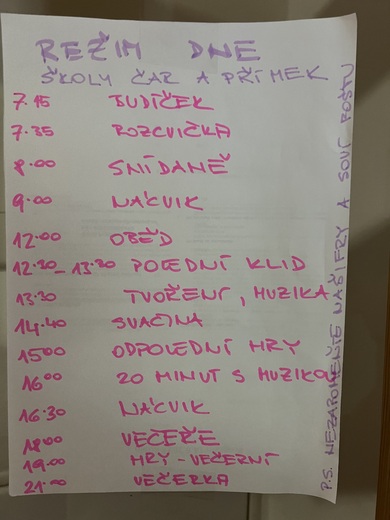 REŽIM DNE
ŠKOLY ČAR A PŘÍMEK
7.15 BUDÍČEK
7.35 ROZCVIČKA
8.00 SNÍDANĚ
9.00 NÁCVIK
12.00 OBĚD
12.30 - 13.30 POLEDNÍ KLID
13.30 TVOŘENÍ, MUZIKA
14.40 SVAČINA
15.00 ODPOLEDNÍ HRY
16.00 20 MINUT S MUZIKOU
16.30 NÁCVIK
18.00 VEČEŘE
19.00 HRY - VEČERNÍ
21.00 VEČERKA
P.S. NEZAPOMEŇTE NA ŠIFRY A SOVÍ POŠTU